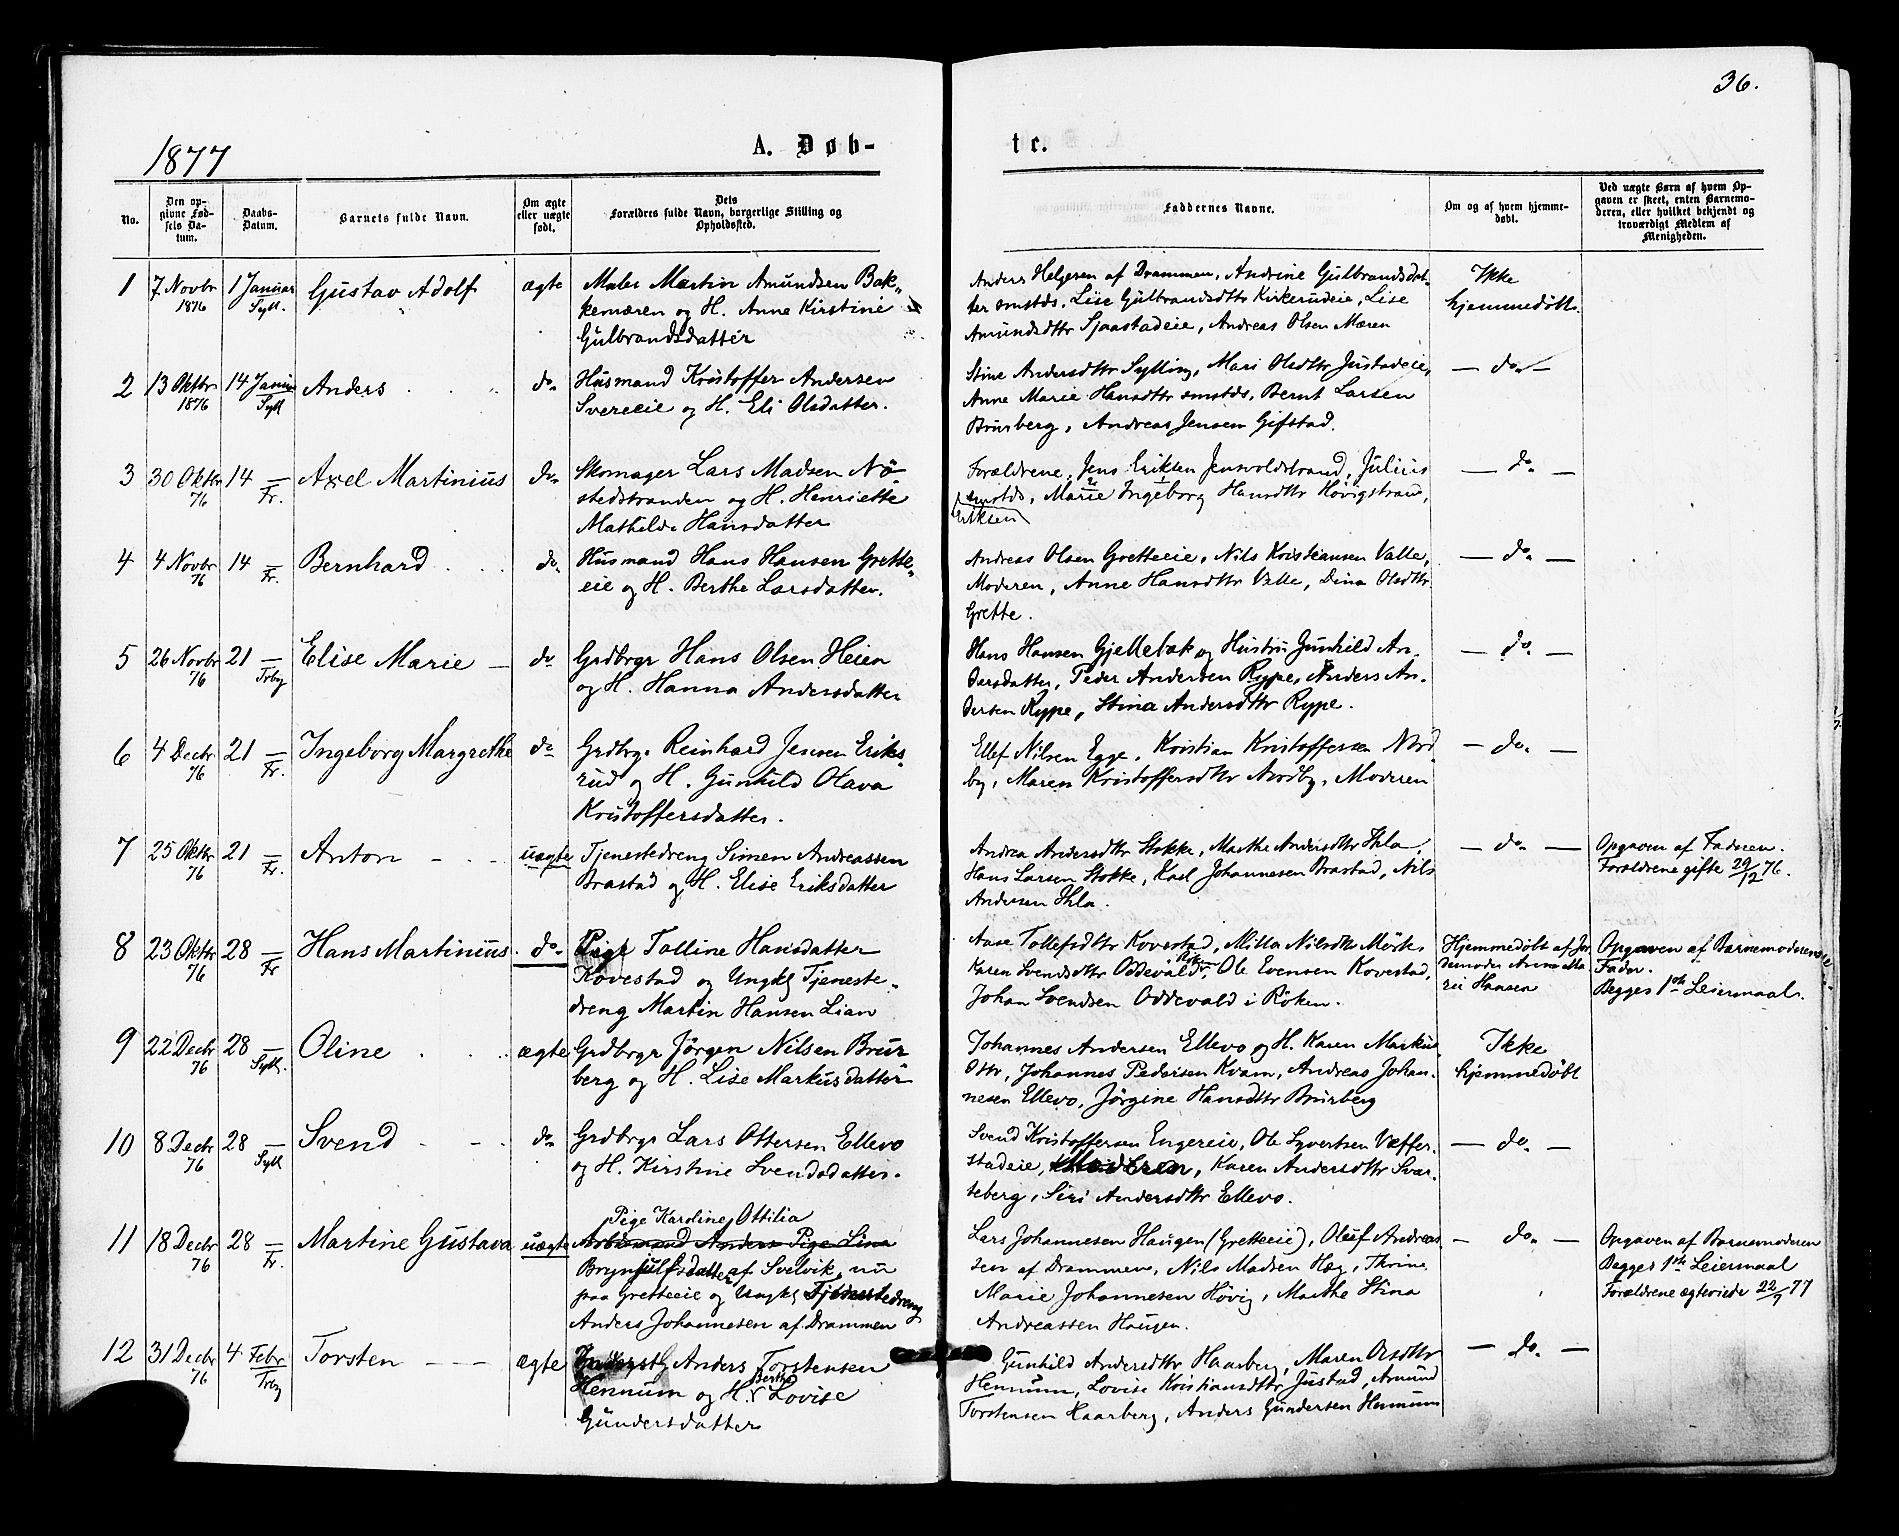 36.
1877
A. Døb-
te.
No.
Den opgivne Fødsels Datum.
Daabs-Datum.
Barnets fulde Navn.
Om ægte eller uægte født.
Dets Forældres fulde Navn, borgerlige Stilling og Opholdssted.
Faddernes Navne.
Om og af hvem hjemmedøbt.
Ved uægte Børn af hvem Opgaven er skeet, enten Barnemoderen, eller hvilket bekjendt og troværdigt Medlem af Menigheden.
1 7 Novbr 1876 1 Januar Syll. Gustav Adolf ægte Maler Martin Amundsen Bak-
kemæren og H. Anne Kirstine
Gulbrandsdatter
Anders Helgesen af Drammen, Andrine Gulbrandsdat-
ter smstds, Lise Gulbrandsdttr Kirkerudeie, Lise
Amundsdttr Sjaastadeie, Andreas Olsen Mæren
Ikke
hjemmedøbt.
2 13 Oktbr 1876 14 Januar Syll Anders do Husmand Kristoffer Andersen
Svereeie og H. Eli Olsdatter.
Stine Andersdttr Sylling, Mari Olsdttr Justadeie,
Anne Marie Hansdttr smstds, Bernt Larsen
Brusberg, Andreas Jensen Gifstad.
— do —
3 30 Oktbr 76 14 — Fr. Axel Martinius do Skomager Lars Madsen Nø-
stedstranden og H. Henriette
Mathilde Hansdatter
Forældrene, Jens Eriksen Jensvoldstrand, Julius
Eriksen smstds, Marie Ingeborg Hansdttr Høvigstrand,
— do —
4 4 Novbr 76 14 — Fr. Bernhard do Husmand Hans Hansen Grette-
eie og H. Berthe Larsdatter.
Andreas Olsen Gretteeie, Nils Kristiansen Valle,
Moderen, Anne Hansdttr Valle, Dina Olsdttr
Grette.
— do —
5 26 Novbr 76 21 — Trby Elise Marie — do Grdbrgr Hans Olsen Heien
og H. Hanna Andersdatter
Hans Hansen Gjellebæk og Hustru Gunhild An-
dersdatter, Peder Andersen Rype, Anders An-
dersen Rype, Stina Andersdttr Rype.
— do —
6 4 Decbr 76 21 — Fr. Ingeborg Margrethe do Grdbrgr Reinhard Jensen Eriks-
rud og H. Gunhild Olava
Kristoffersdatter.
Ellef Nilsen Egge, Kristian Kristoffersen Nord-
by, Maren Kristoffersdttr Nordby, Moderen
— do —
7 25 Oktbr 76 21 — Fr. Anton uægte Tjenestedreng Simen Andreassen
Brastad og H. Elise Eriksdatter
Andrea Andersdttr Stokke, Marthe Andersdttr Skla,
Hans Larsen Stokke, Karl Johannesen Brastad, Nils
Andersen Skla.
— do —
Opgaven af Faderen.
Forældrene gifte 29/12 76.
8 23 Oktbr 76 28 — Fr Hans Martinius do Pige Talline Hansdatter
Kovestad og Ungkl Tjeneste-
dreng Martin Hansen Lian
Aase Tollefsdttr Kovestad, Milla Nilsdttr Mørk,
Karen Svendsdttr Oddevald, Ole Evensen Kovestad,
Johan Svendsen Oddevald i Røken.
Hjemmedøbt af Jor-
demoder Anne Ma-
rie Hansen
Opgaven af Barnemoderens
Fader.
Begges 1ste Leiermaal.
9 22 Decbr 76 28 — Syll. Oline ægte Grdbrgr Jørgen Nilsen Brus-
berg og H. Lise Markusdatter
Johannes Andersen Ellevo og H. Karen Markus-
dttr, Johannes Pedersen Kvam, Andreas Johan-
nesen Ellevo, Jørgine Hansdttr Brusberg
Ikke
hjemmedøbt
10 8 Decbr 76 28 — Syll Svend do Grdbrgr Lars Ottersen Ellevo
og H. Kirstine Svendsdatter.
Svend Kristoffersen Engereie, Ole Syvertsen Væffer-
stadeie, Moderen, Karen Andersdttr Svar-
teberg, Siri Andersdttr Ellevo.
— do —
11 18 Decbr 76 28 — Fr. Martine Gustava uægte Pige Karoline Ottilia
Arbeismand Anders Pige Lina
Brynjulfsdatter af Svelvik, nu
paa Gretteeie og Ungkl Tjenestedreng
Anders Johannesen af Drammen
Lars Johannesen Haugen (Gretteeie), Oluf Andreas-
sen af Drammen, Nils Madsen Hæg, Thrine
Marie Johannesen Høvig, Marthe Stina
Andreassen Haugen.
— do —
Opgaven af Barnemoderen
Begges 1ste Leiermaal
Forældrene ægteviede 22/9 77
12 31 Decbr 76 4 Febr Trby Torsten ægte Anders Torstensen
Hennum og H. Berthe Lovise
Gundersdatter
Gunhild Andersdttr Haarberg, Maren Olsdttr
Hennum, Lovise Kristiansdttr Justad, Amund
Torstensen Haarberg, Anders Gundersen Hennum
— do —